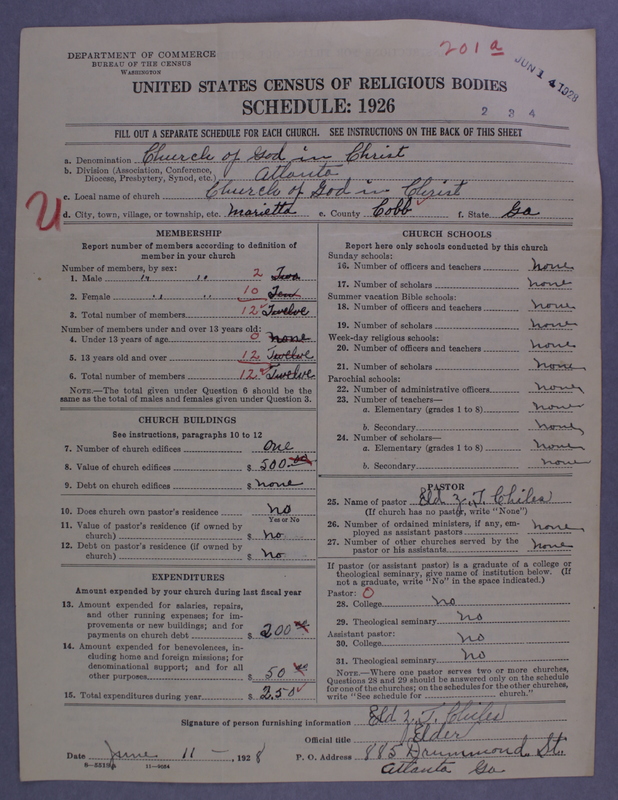 201a
JUN 14 1928
DEPARTMENT OF COMMERCE
BUREAU OF THE CENSUS
WASHINGTON
UNITED STATES CENSUS OF RELIGIOUS BODIES
SCHEDULE: 1926
2 3 4
FILL OUT A SEPARATE SCHEDULE FOR EACH CHURCH. SEE INSTRUCTIONS ON THE BACK OF THIS SHEET
a. Denomination Church of God in Christ
b. Division (Association, Conference, Diocese, Presbytery, Synod, etc.) Atlanta
c. Local name of church Church of God in Christ
U
d. City, town, village, or township, etc. Marietta e. County Cobb f. State Ga
MEMBERSHIP
Report number of members according to definition of
member in your church
Number of members, by sex:
1. Male " " 2 Two
2. Female " " 10 Ten
3. Total number of members 12 Twelve
Number of members under and over 13 years old:
4. Under 13 years of age 0 none
5. 13 years old and over 12 Twelve
6. Total number of members 12 Twelve
NOTE.—The total given under Question 6 should be
same as the total of males and females given under Question 3.
CHURCH BUILDINGS
See instructions, paragraphs 10 to 12
7. Number of church edifices One
8. Value of church edifices $ 500.00
9. Debt on church edifices $ none
10. Does church own pastor's residence? no
Yes or No
11. Value of pastor's residence (if owned by
church) $ no
12. Debt on pastor's residence (if owned by
church) $ no
EXPENDITURES
Amount expended by your church during last fiscal year
13. Amount expended for salaries, repairs,
and other running expenses; for im-
provements or new buildings; and for
payments on church debt $ 200 00
14. Amount expended for benevolences, in-
cluding home and foreign missions; for
denominational support; and for all
other purposes $ 50 00
15. Total expenditures during year $ 250
CHURCH SCHOOLS
Report here only schools conducted by this church
Sunday schools:
16. Number of officers and teachers none
17. Number of scholars none
Summer vacation Bible schools:
18. Number of officers and teachers none
19. Number of scholars none
Week-day religious schools:
20. Number of officers and teachers none
21. Number of scholars none
Parochial schools:
22. Number of administrative officers none
23. Number of teachers—
a. Elementary (grades 1 to 8) none
b. Secondary none
24. Number of scholars—
a. Elementary (grades 1 to 8) none
b. Secondary none
PASTOR
25. Name of pastor Eld Z. T. Chiles
(If church has no pastor, write "None")
26. Number of ordained ministers, if any, em-
ployed as assistant pastors none
27. Number of other churches served by the
pastor or his assistants none
If pastor (or assistant pastor) is a graduate of a college or
theological seminary, give name of institution below. (If
not a graduate, write "No" in the space indicated.)
Pastor: 0
28. College no
29. Theological seminary no
Assistant pastor:
30. College no
31. Theological seminary no
NOTE.—Where one pastor serves two or more churches,
Questions 28 and 29 should be answered only on the schedule
for one of the churches; on the schedules for the other churches,
write "See schedule for church."
Signature of person furnishing information Eld Z. T. Chiles
Official title Elder
Date June 11 - 1928 P. O. Address 885 Drummond St.
11—9054 Atlanta Ga